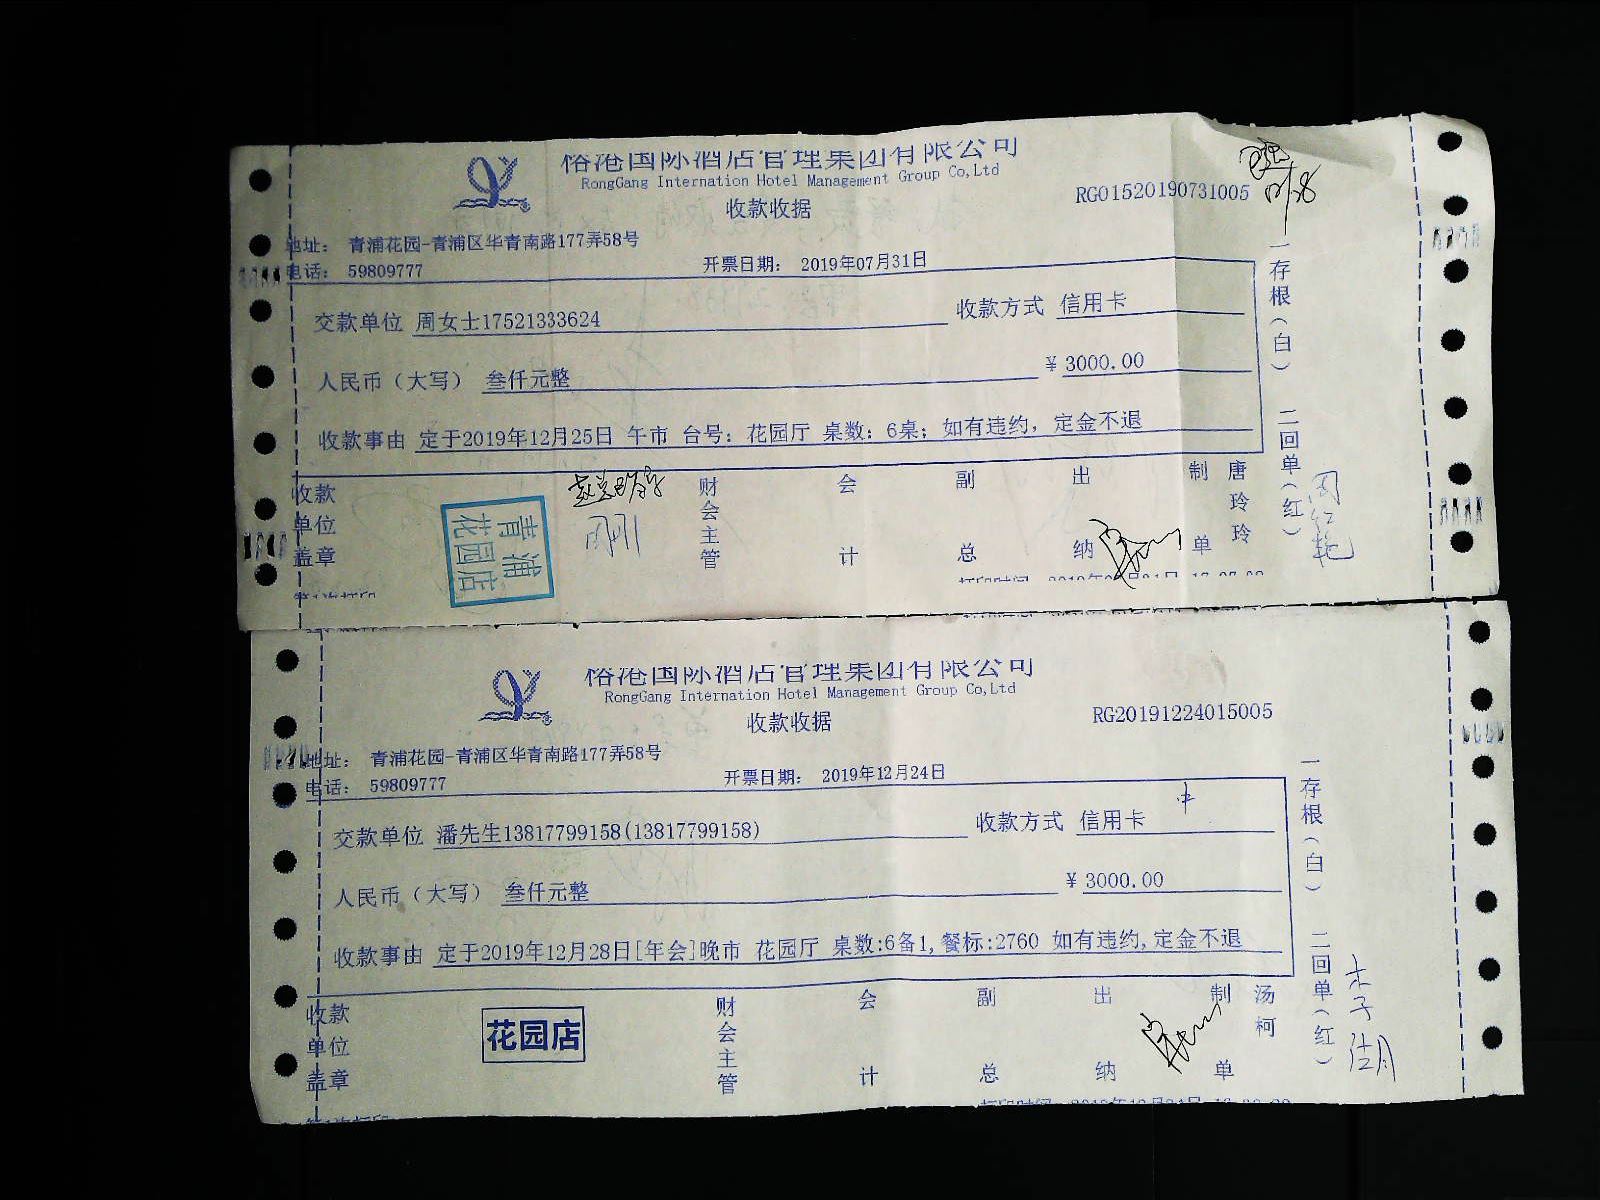 榕港国际酒店管理集团有限公司
RongGang Internation Hotel Management Group Co,Ltd
收款收据
RG01520190731005
地址： 青浦花园-青浦区华青南路177弄58号
电话： 59809777
开票日期： 2019年07月31日
交款单位 周女士17521333624 收款方式 信用卡
人民币（大写） 叁仟元整 ¥ 3000.00
收款事由 定于2019年12月25日 午市 台号： 花园厅 桌数： 6桌；如有违约，定金不退
一存根（白） 二回单（红）
收款单位盖章
青浦花园店
财会主管 会计 副总 出纳 制单 唐玲玲
周红艳
榕港国际酒店管理集团有限公司
RongGang Internation Hotel Management Group Co,Ltd
收款收据
RG20191224015005
地址： 青浦花园-青浦区华青南路177弄58号
电话： 59809777
开票日期： 2019年12月24日
交款单位 潘先生13817799158(13817799158) 收款方式 信用卡
人民币（大写） 叁仟元整 ¥ 3000.00
收款事由 定于2019年12月28日[年会]晚市 花园厅 桌数:6备1,餐标:2760 如有违约,定金不退
一存根（白） 二回单（红）
收款单位盖章
花园店
财会主管 会计 副总 出纳 制单 汤柯